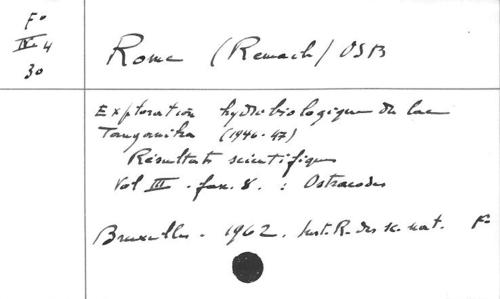 F°
IV-4
30
Rome (Remacle) OSB
Exploration hydrobiologique du lac
Tanganika (1946-47)
Résultats scientifiques
Vol III - fasc. 8. : Ostracodes
Bruxelles - 1962. Inst. R. des sc. nat. F°